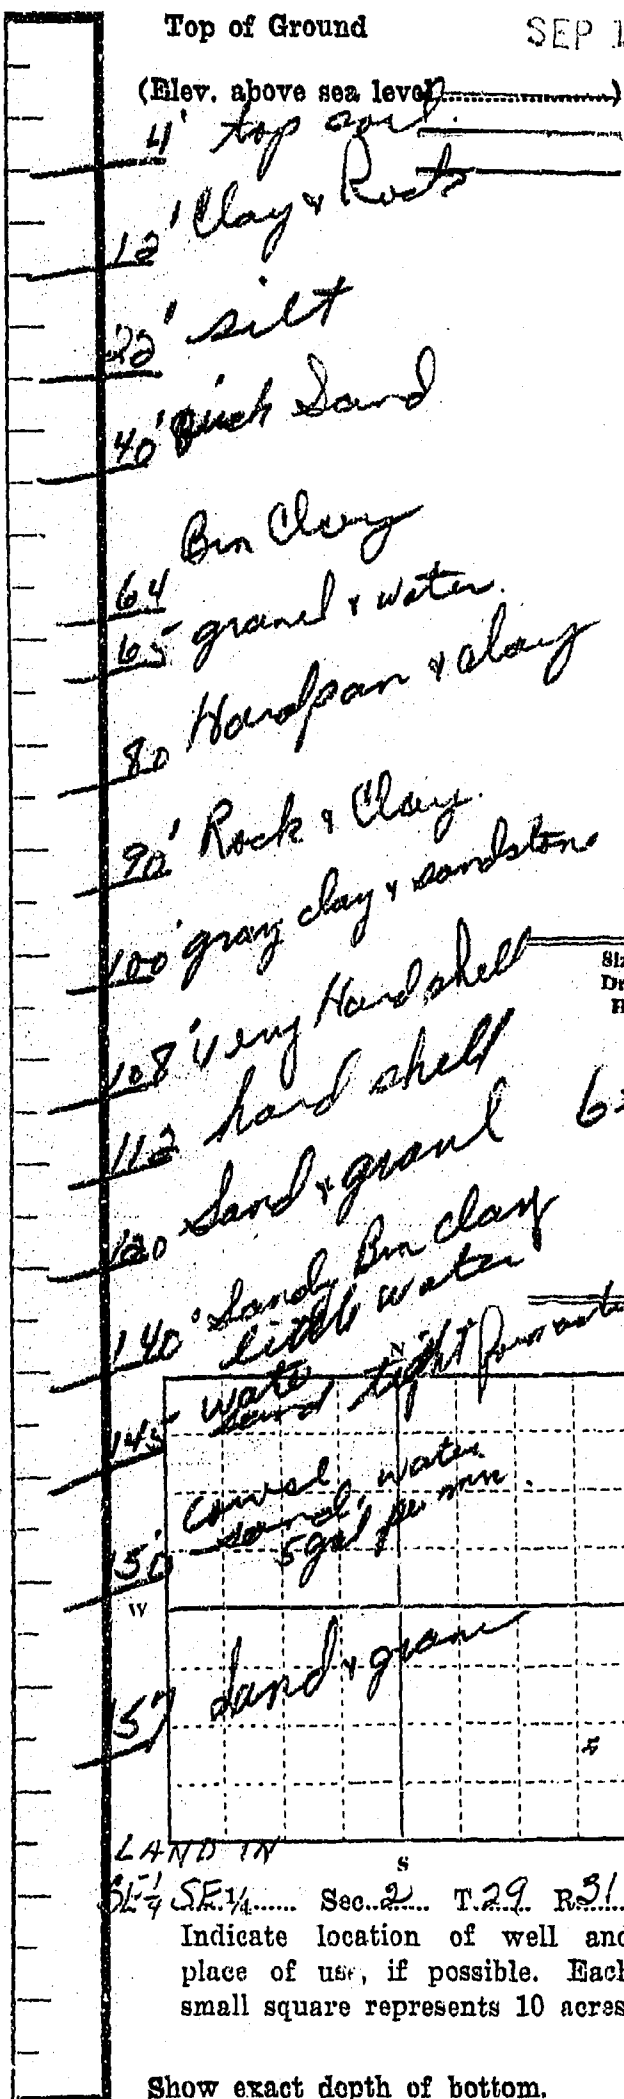 Top of Ground
SEP 1
(Elev. above sea level)
4' top soil
12' Clay & Rocks
22' silt
40' Quick Sand
Brn Clay
64
65 gravel & water.
80 Hardpan & clay
90' Rock & Clay.
100' gray clay & sandstone
Siz
Dr
H
108' Very Hard shell
112 hard shell
6"
120 Sand & gravel
140' Sandy Brn clay
little water
N
145 water
sand tight formation
coarse
150' sand, water
5 gal per min.
W
157 Sand & gravel
LAND IN
S
SE 1/4 SE 1/4 Sec. 2 T. 29 R. 31
Indicate location of well and
place of use, if possible. Each
small square represents 10 acres
Show exact depth of bottom.